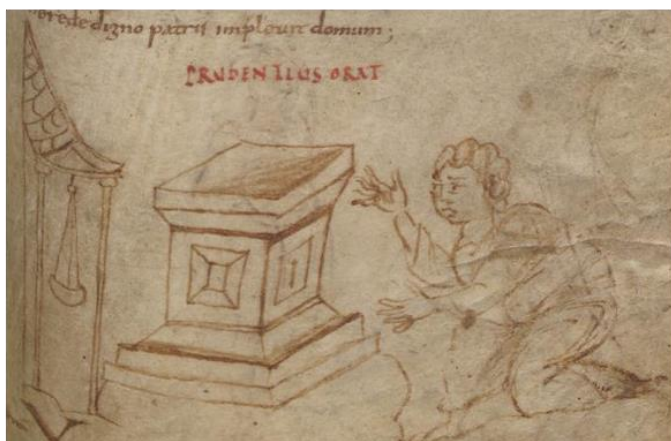 herede digno patrii impleuit domum;
PRUDENTIUS ORAT